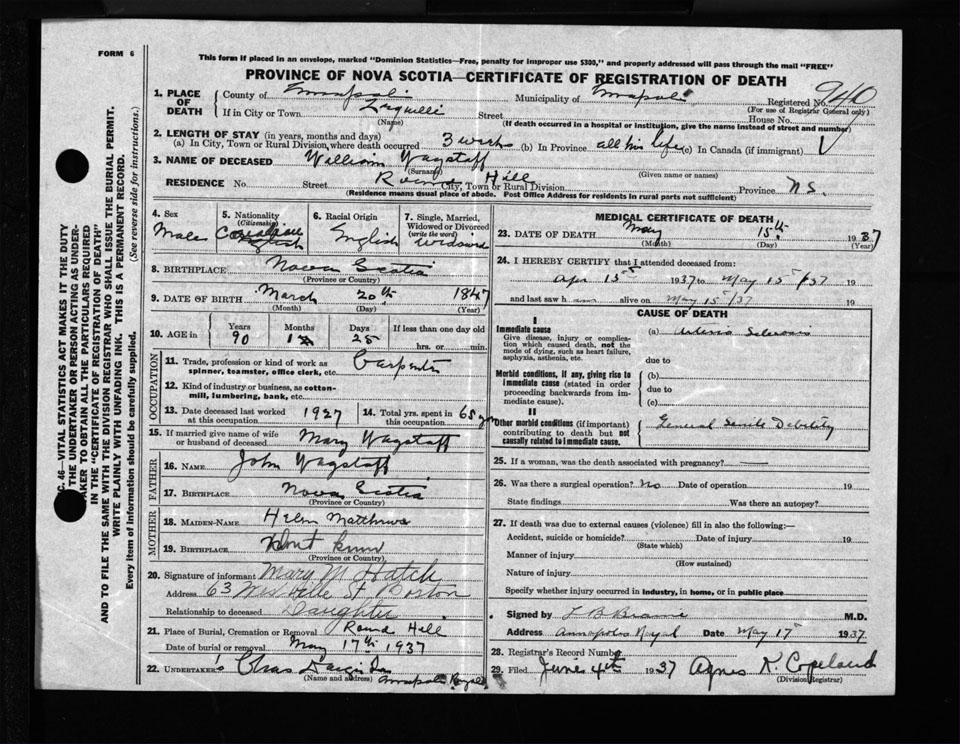 FORM 6
This form if placed in an envelope, marked "Dominion Statistics—Free, penalty for improper use $300," and properly addressed will pass through the mail "FREE"
PROVINCE OF NOVA SCOTIA—CERTIFICATE OF REGISTRATION OF DEATH
C. 46—VITAL STATISTICS ACT MAKES IT THE DUTY
THE UNDERTAKER OR PERSON ACTING AS UNDER-
TAKER TO OBTAIN ALL THE PARTICULARS REQUIRED
IN THE "CERTIFICATE OF REGISTRATION OF DEATH"
AND TO FILE THE SAME WITH THE DIVISION REGISTRAR WHO SHALL ISSUE THE BURIAL PERMIT.
WRITE PLAINLY WITH UNFADING INK. THIS IS A PERMANENT RECORD.
Every item of information should be carefully supplied. (See reverse side for instructions.)
1. PLACE OF DEATH County of Annapolis Municipality of Annapolis Registered No. 940
(For use of Registrar General only)
If in City or Town Lequille Street House No.
(Name) (If death occurred in a hospital or institution, give the name instead of street and number)
2. LENGTH OF STAY (in years, months and days)
(a) In City, Town or Rural Division, where death occurred 3 weeks (b) In Province all his life (c) In Canada (if immigrant)
3. NAME OF DECEASED William Wagstaff
(Surname) (Given name or names)
RESIDENCE No. Street Round Hill City, Town or Rural Division Province N.S.
(Residence means usual place of abode. Post Office Address for residents in rural parts not sufficient)
4. Sex Male
5. Nationality (Citizenship) Canadian English
6. Racial Origin English
7. Single, Married, Widowed or Divorced (write the word) Widowed
8. BIRTHPLACE Nova Scotia
(Province or Country)
9. DATE OF BIRTH March 20th 1847
(Month) (Day) (Year)
10. AGE in Years 90 Months 1 Days 25 If less than one day old
hrs. or min.
OCCUPATION
11. Trade, profession or kind of work as spinner, teamster, office clerk, etc. Carpenter
12. Kind of industry or business, as cotton-mill, lumbering, bank, etc.
13. Date deceased last worked at this occupation 1927
14. Total yrs. spent in this occupation 65 yrs
15. If married give name of wife or husband of deceased Mary Wagstaff
FATHER
16. NAME John Wagstaff
17. BIRTHPLACE Nova Scotia
(Province or Country)
MOTHER
18. MAIDEN-NAME Helen Matthews
19. BIRTHPLACE Don't know
(Province or Country)
20. Signature of informant Mary M Hatch
Address 63 St Boston
Relationship to deceased Daughter
21. Place of Burial, Cremation or Removal Round Hill
Date of burial or removal May 17th 1937
22. UNDERTAKER'S Chas
(Name and address) Annapolis Royal
MEDICAL CERTIFICATE OF DEATH
23. DATE OF DEATH May 15th 1937
(Month) (Day) (Year)
24. I HEREBY CERTIFY that I attended deceased from:
Apr 15 1937 to May 15/37 19
and last saw h alive on May 15/37 19
CAUSE OF DEATH
I
Immediate cause
Give disease, injury or complication which caused death, not the mode of dying, such as heart failure, asphyxia, asthenia, etc.
(a) Arterio Sclerosis
due to
Morbid conditions, if any, giving rise to immediate cause (stated in order proceeding backwards from immediate cause).
(b)
due to
(c)
II
Other morbid conditions (if important) contributing to death but not causally related to immediate cause.
General Senile Debility
25. If a woman, was the death associated with pregnancy?
26. Was there a surgical operation? No Date of operation 19
State findings Was there an autopsy?
27. If death was due to external causes (violence) fill in also the following:—
Accident, suicide or homicide? Date of injury 19
(State which)
Manner of injury
(How sustained)
Nature of injury
Specify whether injury occurred in industry, in home, or in public place
Signed by L B Braine M.D.
Address Annapolis Royal Date May 17 1937.
28. Registrar's Record Number
29. Filed June 4th 1937 Agnes K. Copeland
(Division Registrar)